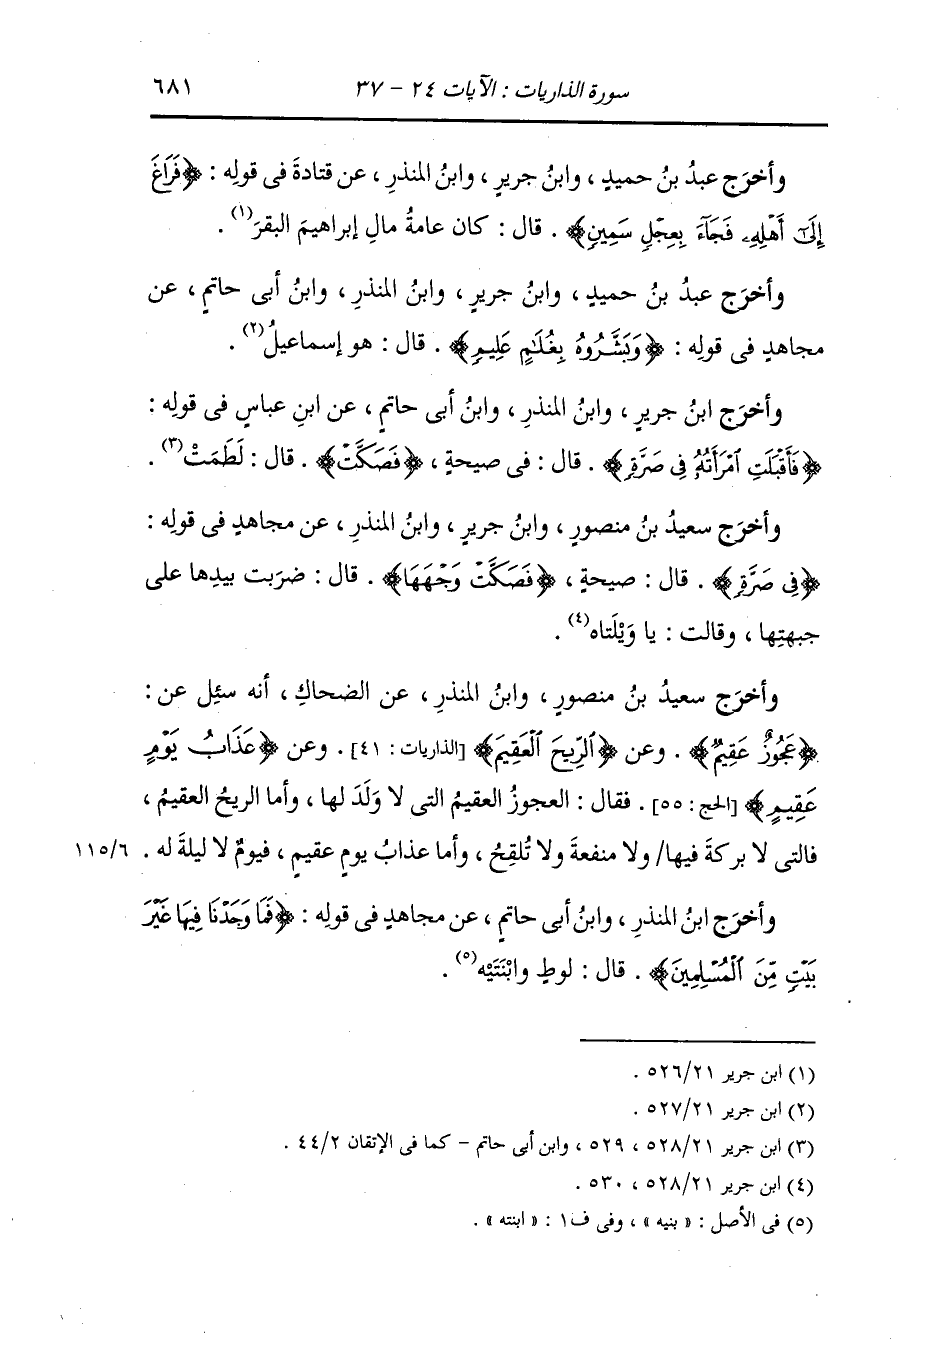 سورة الذاريات : الآيات ٢٤ - ٣٧ ٦٨١
وأخرَج عبدُ بنُ حميدٍ ، وابنُ جريرٍ ، وابنُ المنذرِ ، عن قتادةَ فى قولِه : ﴿فَرَاغَ
إِلَىٰٓ أَهْلِهِۦ فَجَآءَ بِعِجْلٍ سَمِينٍ﴾ . قال : كان عامةُ مالِ إبراهيمَ البقرَ(١) .
وأخرَج عبدُ بنُ حميدٍ ، وابنُ جريرٍ ، وابنُ المنذرِ ، وابنُ أبى حاتمٍ ، عن
مجاهدٍ فى قولِه : ﴿وَبَشَّرُوهُ بِغُلَٰمٍ عَلِيمٍ﴾ . قال : هو إسماعيلُ(٢) .
وأخرَج ابنُ جريرٍ ، وابنُ المنذرِ ، وابنُ أبى حاتمٍ ، عن ابنِ عباسٍ فى قولِه :
﴿فَأَقْبَلَتِ ٱمْرَأَتُهُۥ فِى صَرَّةٍ﴾ . قال : فى صيحةٍ ، ﴿فَصَكَّتْ﴾ . قال : لَطَمَتْ(٣) .
وأخرَج سعيدُ بنُ منصورٍ ، وابنُ جريرٍ ، وابنُ المنذرِ ، عن مجاهدٍ فى قولِه :
﴿فِى صَرَّةٍ﴾ . قال : صيحةٍ ، ﴿فَصَكَّتْ وَجْهَهَا﴾ . قال : ضرَبت بيدِها على
جبهتِها ، وقالت : يا وَيْلَتاه(٤) .
وأخرَج سعيدُ بنُ منصورٍ ، وابنُ المنذرِ ، عن الضحاكِ ، أنه سئِل عن :
﴿عَجُوزٌ عَقِيمٌ﴾ . وعن ﴿ٱلرِّيحَ ٱلْعَقِيمَ﴾ [الذاريات : ٤١] . وعن ﴿عَذَابُ يَوْمٍ
عَقِيمٍ﴾ [الحج : ٥٥] . فقال : العجوزُ العقيمُ التى لا وَلَدَ لها ، وأما الريحُ العقيمُ ،
فالتى لا بركةَ فيها/ ولا منفعةَ ولا تُلقِحُ ، وأما عذابُ يومٍ عقيمٍ ، فيومٌ لا ليلةَ له . ١١٥/٦
وأخرَج ابنُ المنذرِ ، وابنُ أبى حاتمٍ ، عن مجاهدٍ فى قولِه : ﴿فَمَا وَجَدْنَا فِيهَا غَيْرَ
بَيْتٍ مِّنَ ٱلْمُسْلِمِينَ﴾ . قال : لوطٍ وابْنَتَيْه(٥) .
(١) ابن جرير ٥٢٦/٢١ .
(٢) ابن جرير ٥٢٧/٢١ .
(٣) ابن جرير ٥٢٨/٢١ ، ٥٢٩ ، وابن أبى حاتم - كما فى الإتقان ٤٤/٢ .
(٤) ابن جرير ٥٢٨/٢١ ، ٥٣٠ .
(٥) فى الأصل : « بنيه » ، وفى ف١ : « ابنته » .